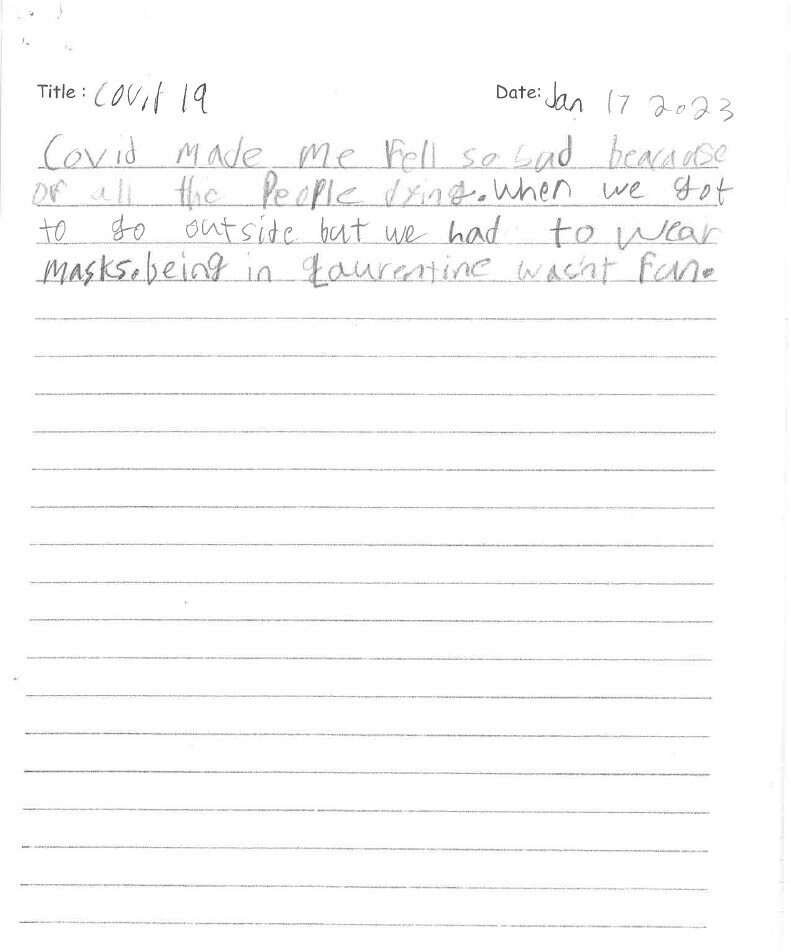 Title : COVit 19 Date: Jan 17 2023
Covid made me Fell so bad bearause
of all the People dying. When we got
to go outside but we had to wear
masks. being in qaurentine wasn't Fun.